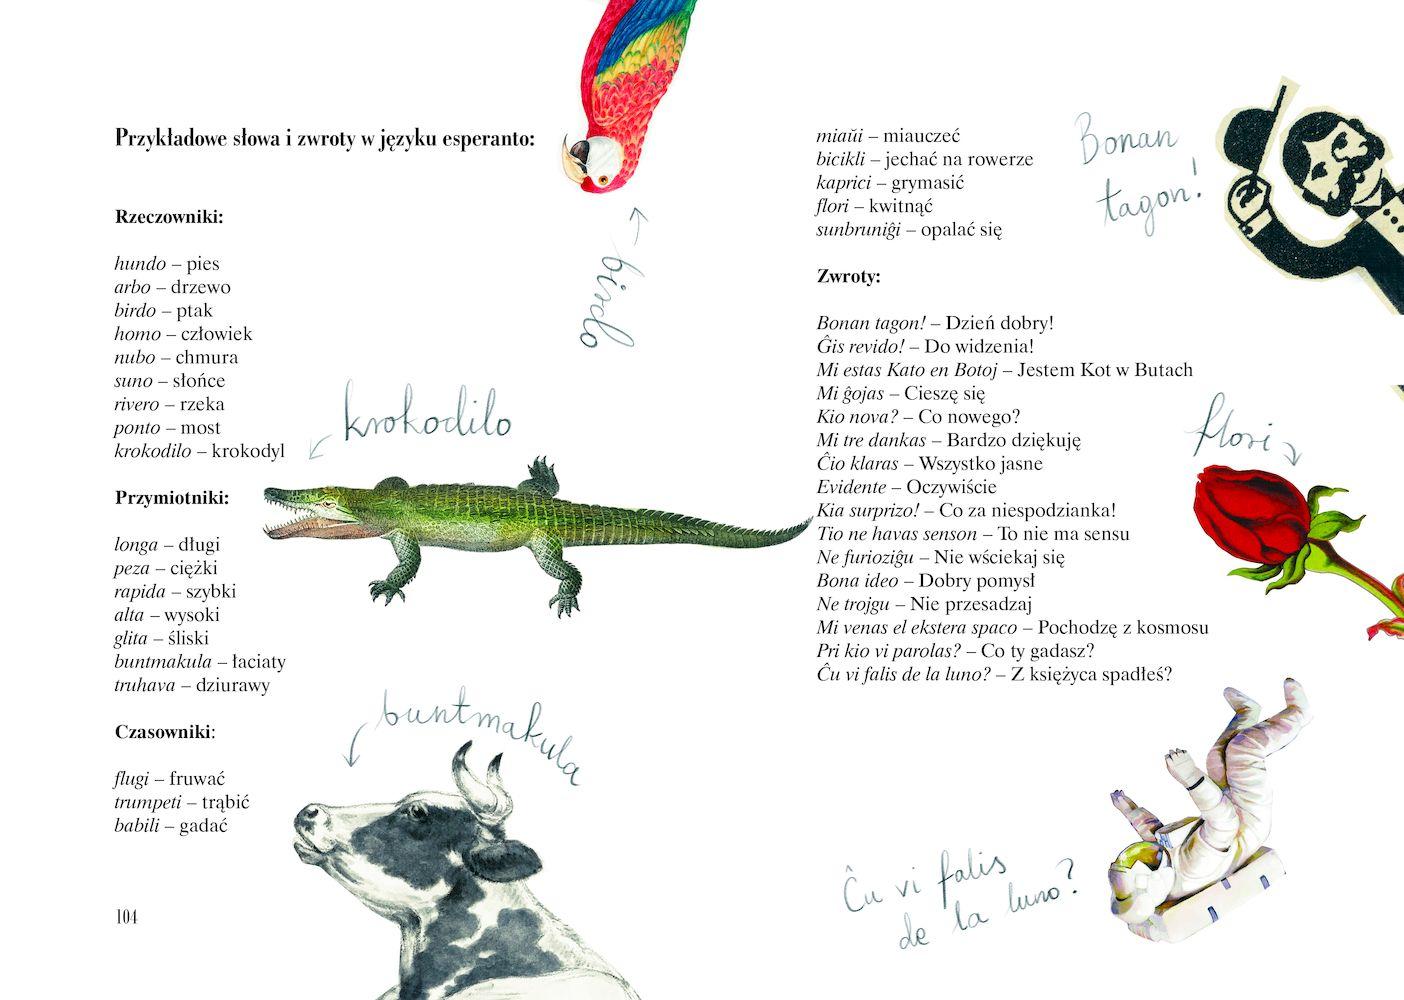 Przykładowe słowa i zwroty w języku esperanto:
Rzeczowniki:
hundo – pies
arbo – drzewo
birdo – ptak
homo – człowiek
nubo – chmura
suno – słońce
rivero – rzeka
ponto – most
krokodilo – krokodyl
Przymiotniki:
longa – długi
peza – ciężki
rapida – szybki
alta – wysoki
glita – śliski
buntmakula – łaciaty
truhava – dziurawy
Czasowniki:
flugi – fruwać
trumpeti – trąbić
babili – gadać
104
birdo
krokodilo
buntmakula
miaŭi – miauczeć
bicikli – jechać na rowerze
kaprici – grymasić
flori – kwitnąć
sunbruniĝi – opalać się
Zwroty:
Bonan tagon! – Dzień dobry!
Ĝis revido! – Do widzenia!
Mi estas Kato en Botoj – Jestem Kot w Butach
Mi ĝojas – Cieszę się
Kio nova? – Co nowego?
Mi tre dankas – Bardzo dziękuję
Ĉio klaras – Wszystko jasne
Evidente – Oczywiście
Kia surprizo! – Co za niespodzianka!
Tio ne havas senson – To nie ma sensu
Ne furioziĝu – Nie wściekaj się
Bona ideo – Dobry pomysł
Ne trojgu – Nie przesadzaj
Mi venas el ekstera spaco – Pochodzę z kosmosu
Pri kio vi parolas? – Co ty gadasz?
Ĉu vi falis de la luno? – Z księżyca spadłeś?
Bonan
tagon!
flori
Ĉu vi falis
de la luno?